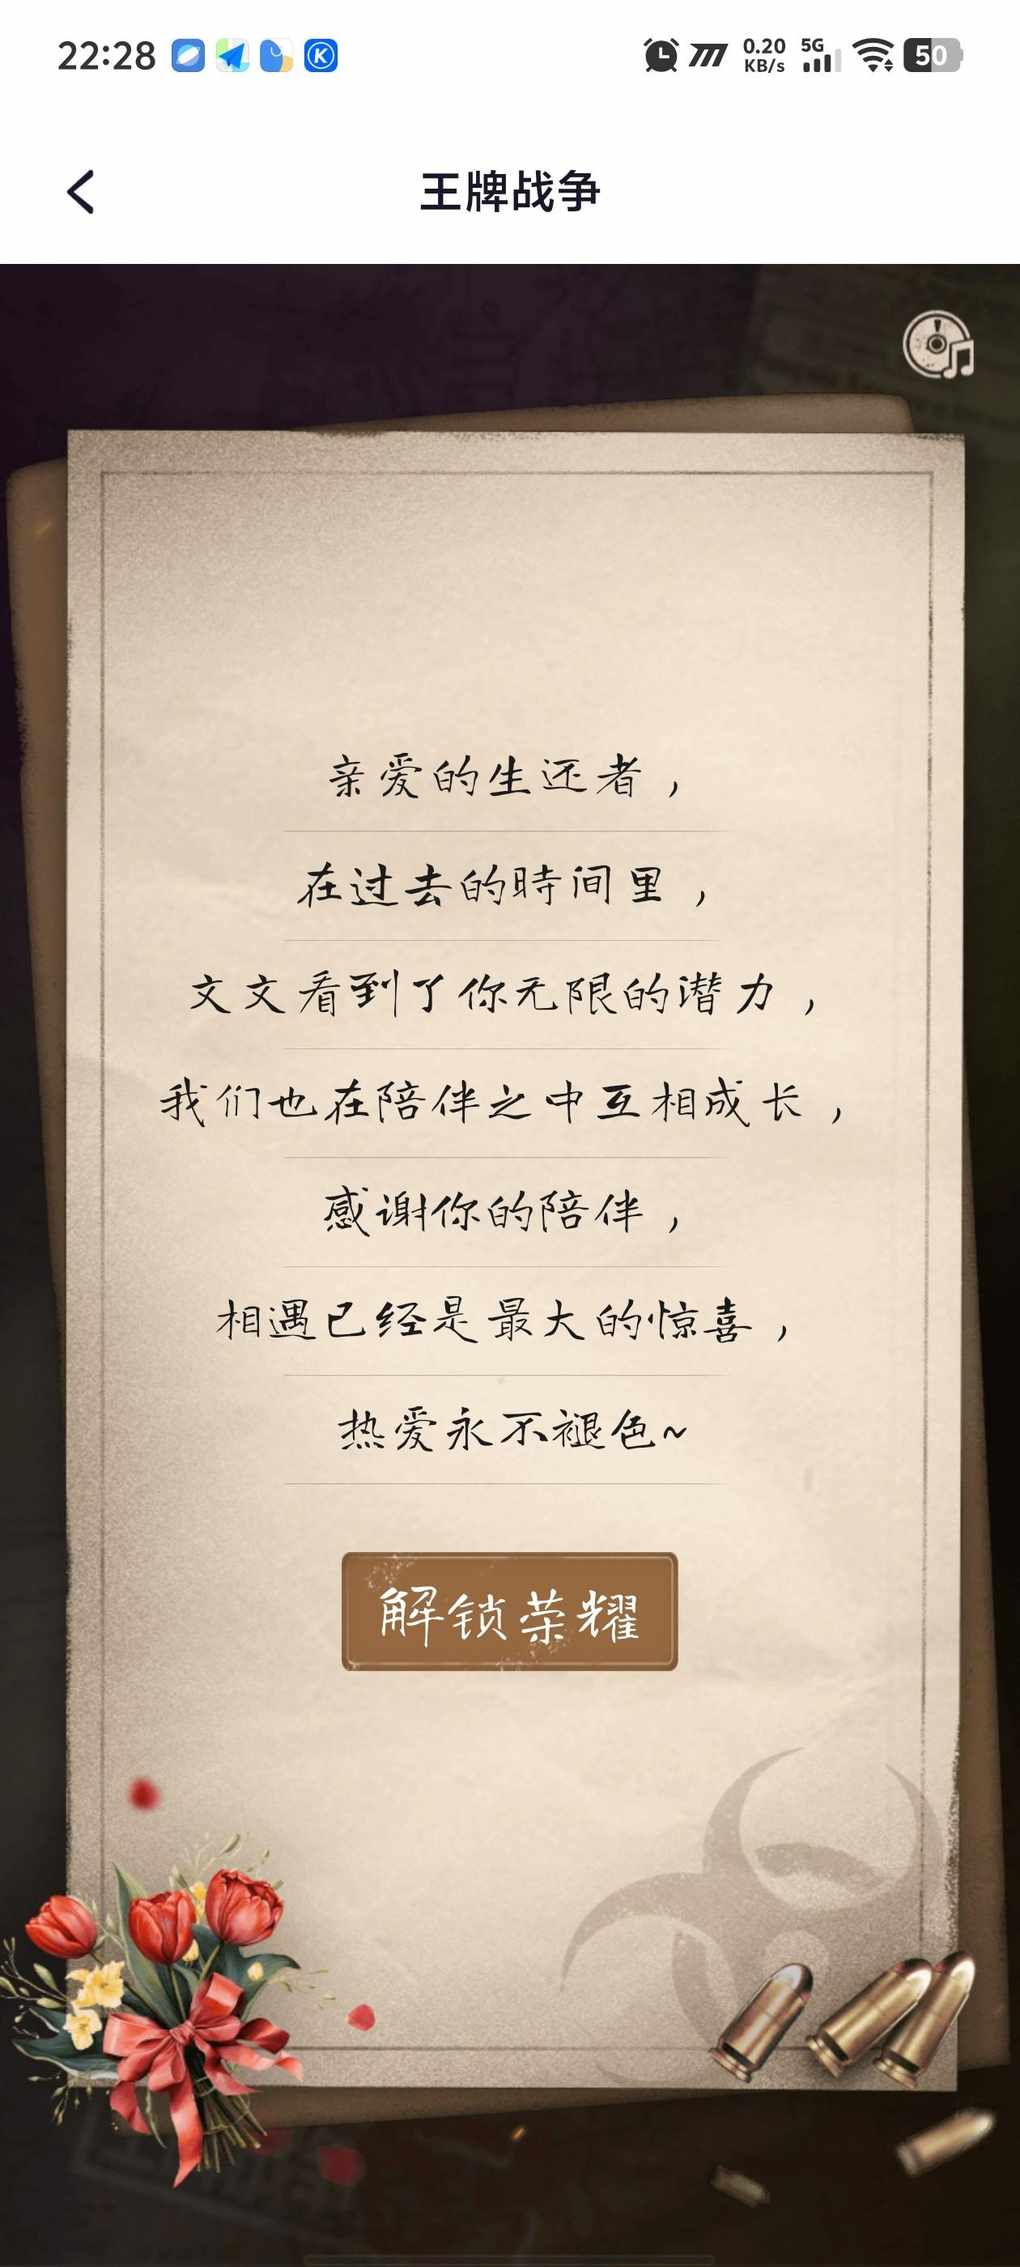 22:28
0.20 KB/s 5G 50
王牌战争
亲爱的生还者，
在过去的時间里，
文文看到了你无限的潜力，
我们也在陪伴之中互相成长，
感谢你的陪伴，
相遇已经是最大的惊喜，
热爱永不褪色~
解锁荣耀